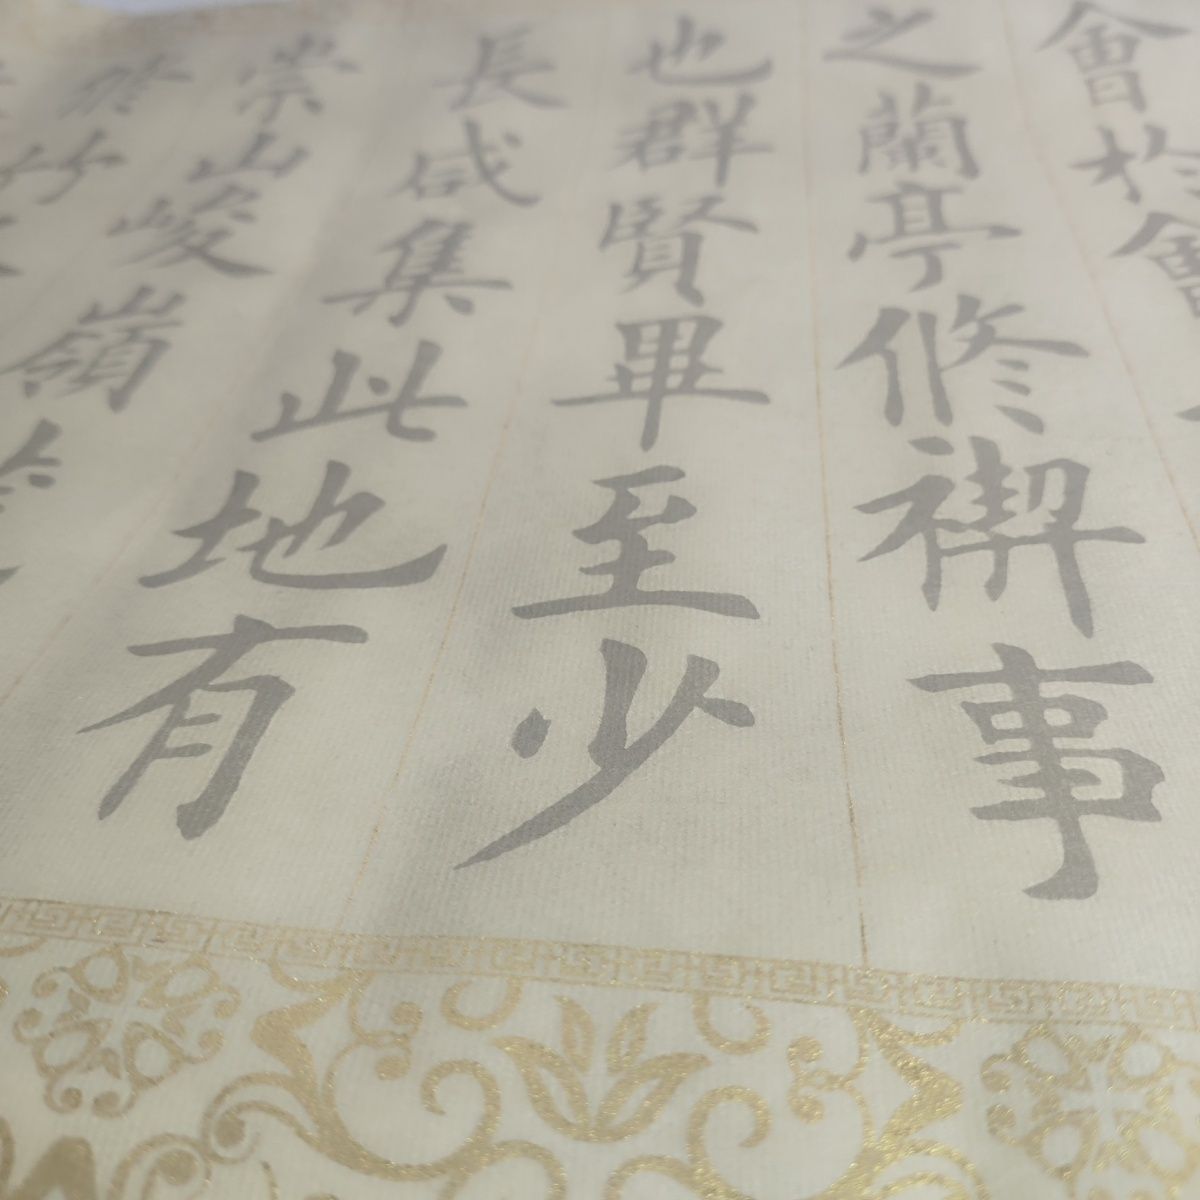 會於會
之蘭亭修禊事
也群賢畢至少
長咸集此地有
崇山峻嶺
修竹